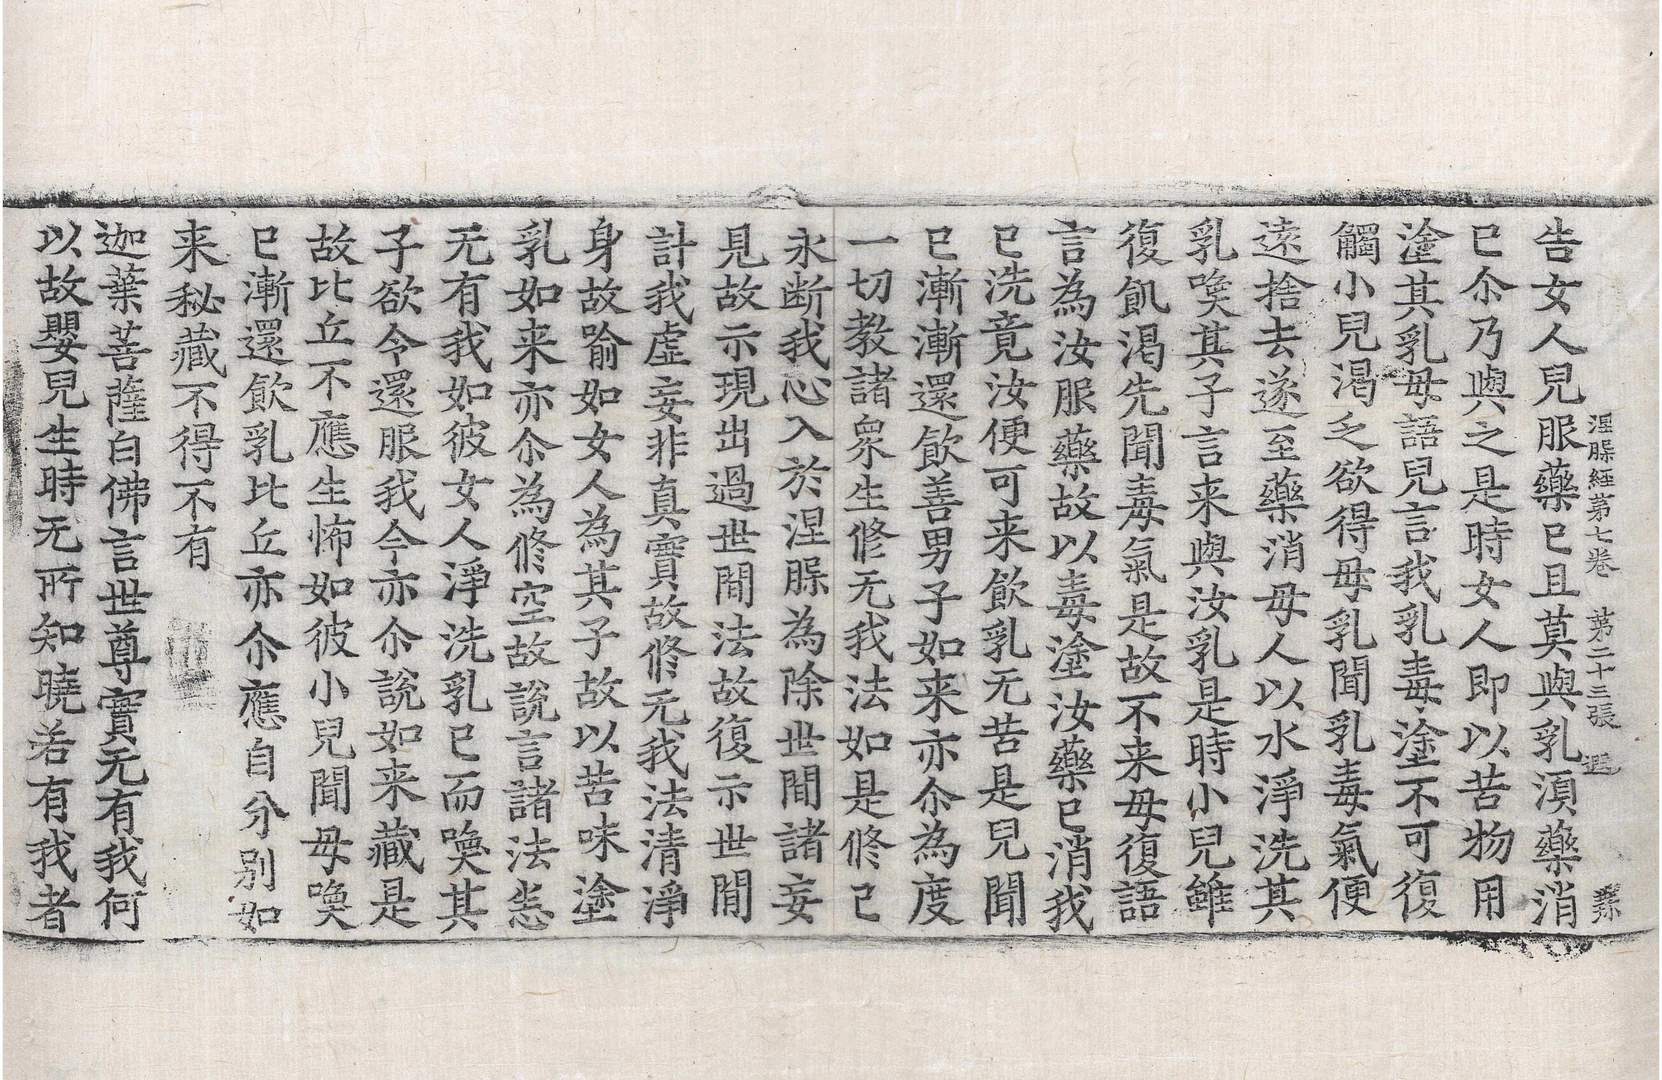 涅槃経苐七巻 苐二十三張 遐
告女人兒服藥已且莫與乳湏藥消
已尒乃與之是時女人即以苦物用
塗其乳母語兒言我乳毒塗不可復
觸小兒渴乏欲得母乳聞乳毒氣便
遠捨去遂至藥消母人以水淨洗其
乳喚其子言来與汝乳是時小兒雖
復飢渴先聞毒氣是故不来母復語
言為汝服藥故以毒塗汝藥已消我
已洗竟汝便可来飲乳无苦是兒聞
已漸漸還飲善男子如来亦尒為度
一切教諸衆生修无我法如是修已
永断我心入於涅槃為除世間諸妄
見故示現出過世間法故復示世間
計我虛妄非真實故修无我法清淨
身故喻如女人為其子故以苦味塗
乳如来亦尒為修空故說言諸法悉
无有我如彼女人淨洗乳已而喚其
子欲令還服我今亦尒說如来藏是
故比丘不應生怖如彼小兒聞母喚
已漸還飲乳比丘亦尒應自分别如
来秘藏不得不有
迦葉菩薩白佛言世尊實无有我何
以故嬰兒生時无所知曉若有我者